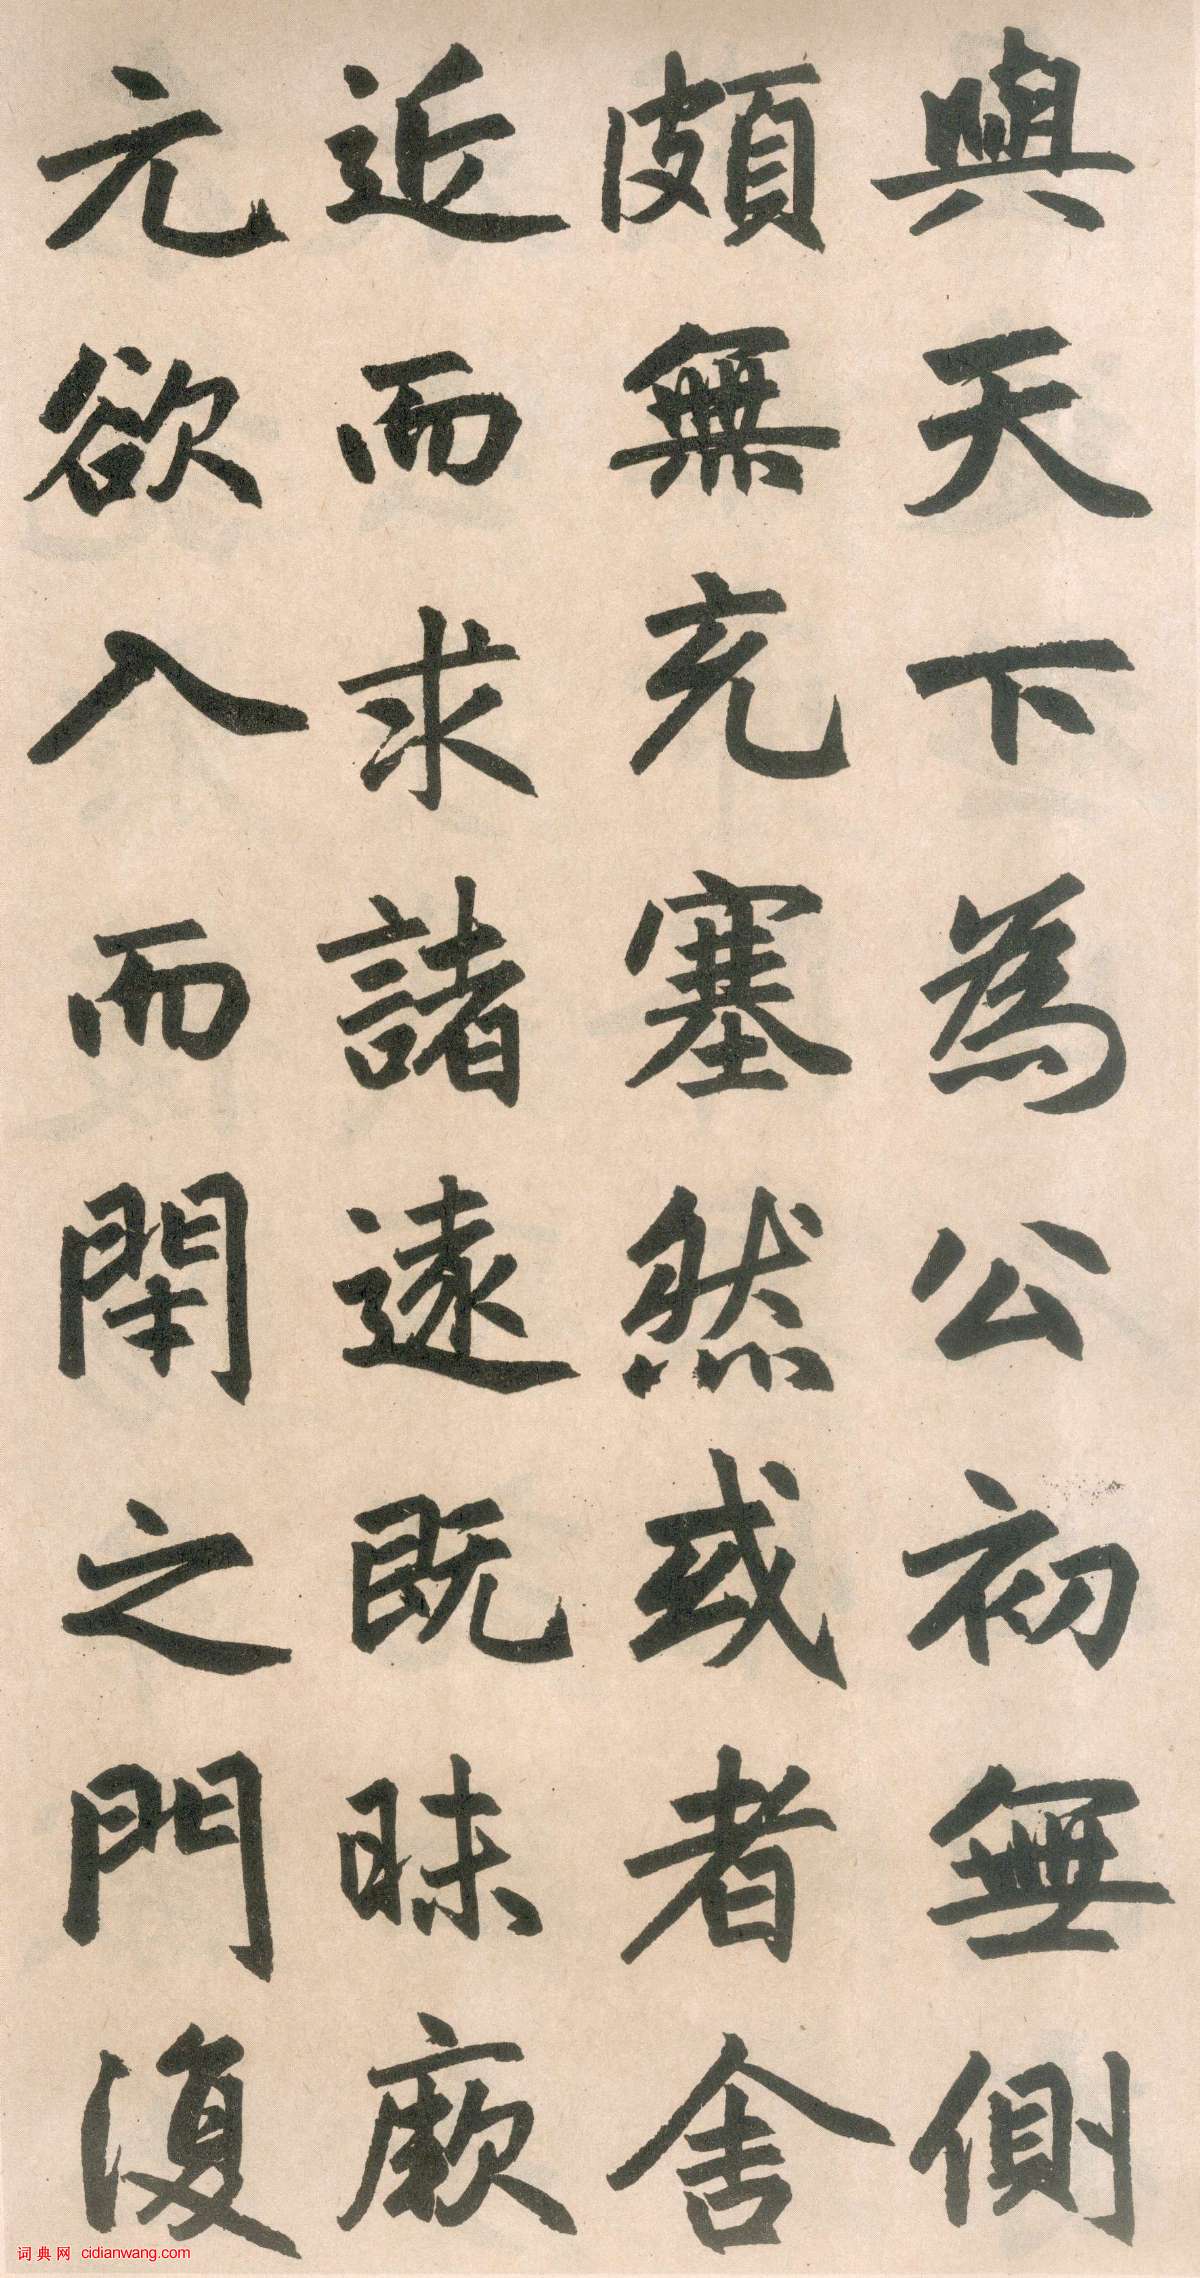 與天下為公初無側
頗無充塞然或者舍
近而求諸遠既昧厥
元欲入而閉之門復
词典网 cidianwang.com